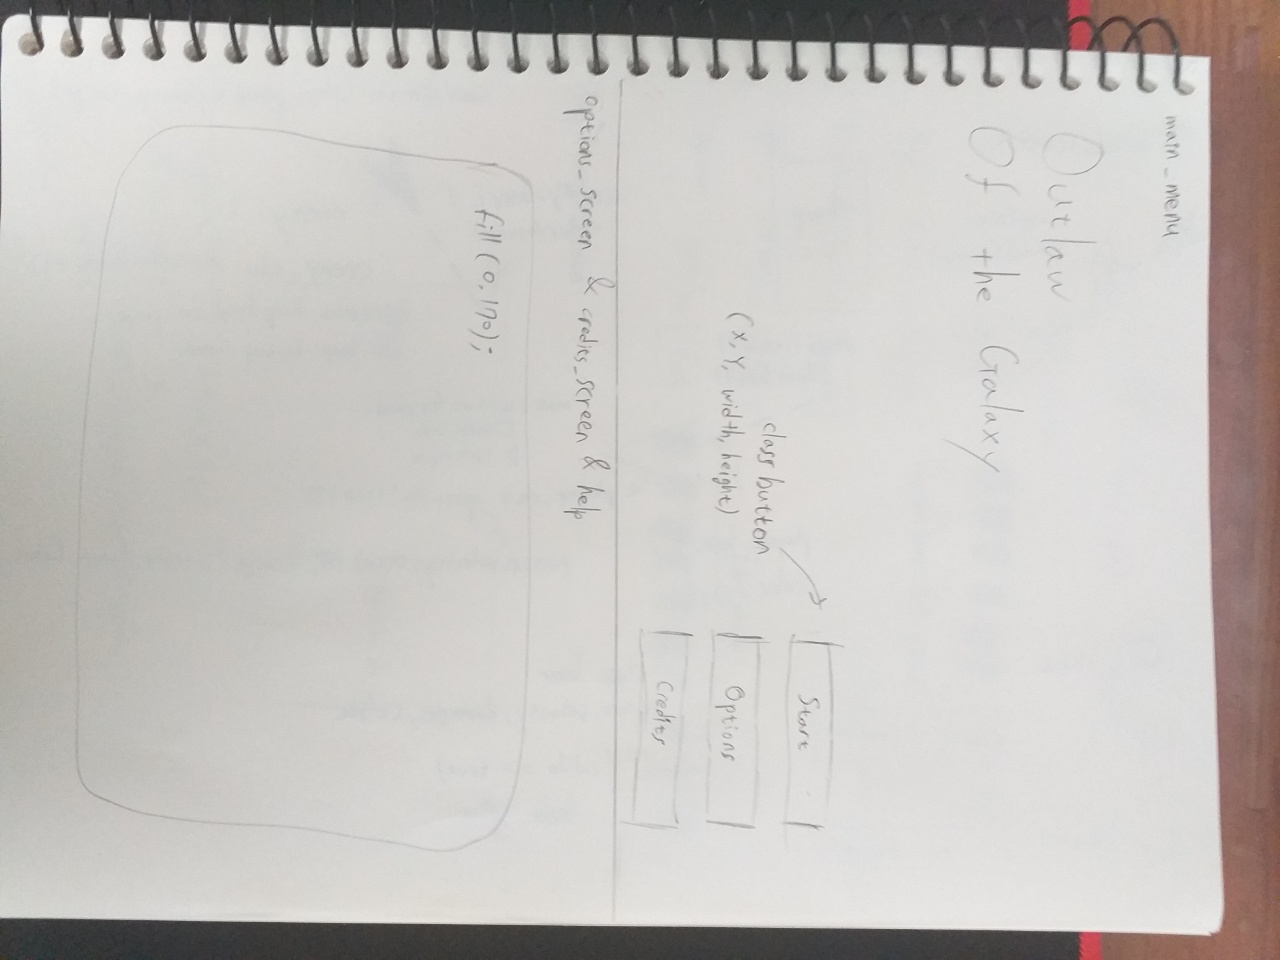 main_menu
Outlaw
Of the Galaxy
class button
(x, Y, width, height)
Start
Options
Credits
options_screen & credits_screen & help
fill (0, 170);